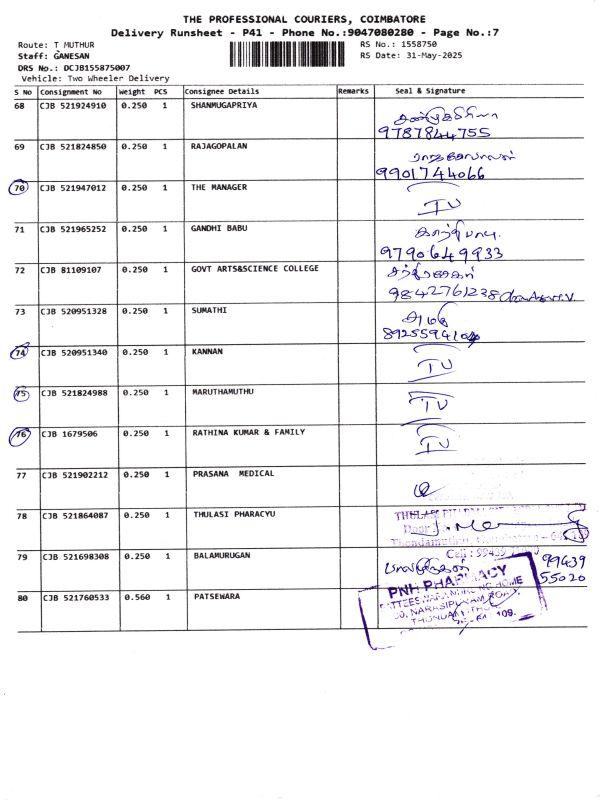 THE PROFESSIONAL COURIERS, COIMBATORE
Delivery Runsheet - P41 - Phone No.:9047080280 - Page No.:7
Route: T MUTHUR RS No.: 1558750
Staff: GANESAN RS Date: 31-May-2025
DRS No.: DCJB155875007
Vehicle: Two Wheeler Delivery
S No Consignment No Weight PCS Consignee Details Remarks Seal & Signature
68 CJB 521924910 0.250 1 SHANMUGAPRIYA சண்முகபிரியா
9787844755
69 CJB 521824850 0.250 1 RAJAGOPALAN ராஜகோபாலன்
9901744066
70 CJB 521947012 0.250 1 THE MANAGER IU
71 CJB 521965252 0.250 1 GANDHI BABU காந்திபாபு
9790649933
72 CJB 81109107 0.250 1 GOVT ARTS&SCIENCE COLLEGE
9842761238
73 CJB 520951328 0.250 1 SUMATHI
74 CJB 520951340 0.250 1 KANNAN IU
75 CJB 521824988 0.250 1 MARUTHAMUTHU IU
76 CJB 1679506 0.250 1 RATHINA KUMAR & FAMILY IU
77 CJB 521902212 0.250 1 PRASANA MEDICAL
78 CJB 521864087 0.250 1 THULASI PHARACYU THULASI
79 CJB 521698308 0.250 1 BALAMURUGAN பாலமுருகன் 99439
55020
80 CJB 521760533 0.560 1 PATSEWARA PNH PHARMACY